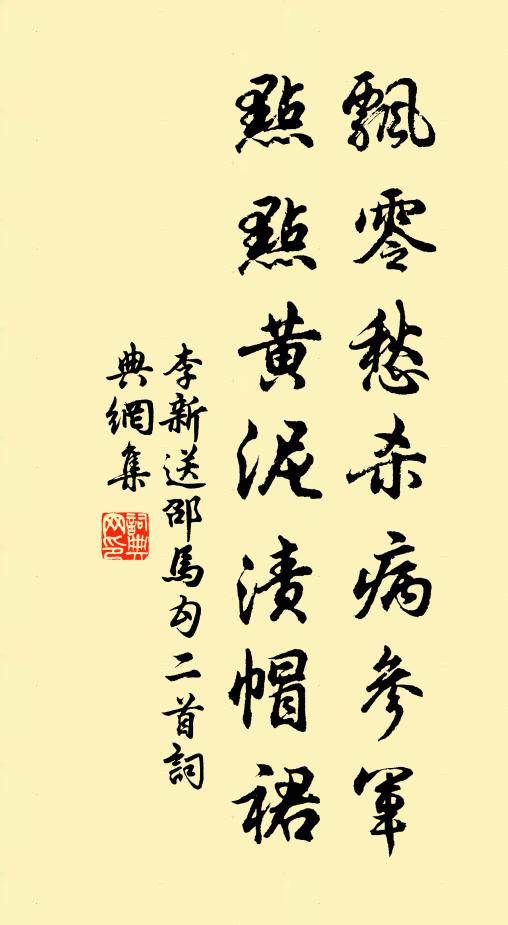 飄零愁杀病參軍
點點黃泥漬帽裙
李新送邵馬勾二首詞
典網集
詞典
网印